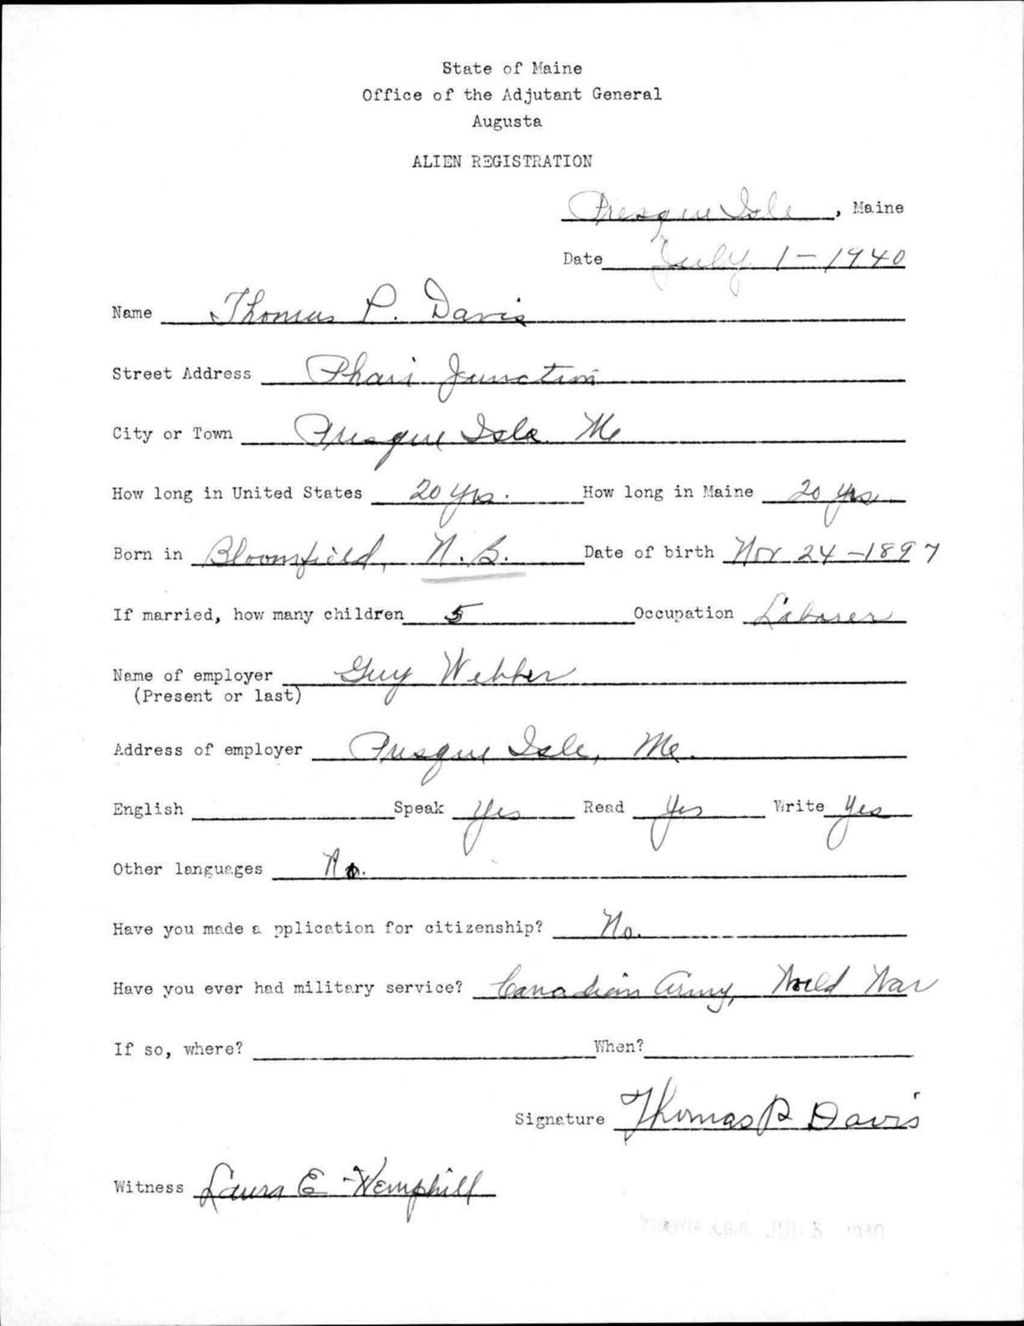 State of Maine
Office of the Adjutant General
Augusta
ALIEN REGISTRATION
Presque Isle, Maine
Date July 1-1940
Name Thomas P. Davis
Street Address Phair Junction
City or Town Presque Isle Me
How long in United States 20 yrs. How long in Maine 20 yrs
Born in Bloomfield, N.B. Date of birth Nov 24-1897
If married, how many children 5 Occupation Laborer
Name of employer Guy Webber
(Present or last)
Address of employer Presque Isle, Me.
English Speak Yes Read Yes Write Yes
Other languages No.
Have you made a pplication for citizenship? No.
Have you ever had military service? Canadian Army, World War
If so, where? When?
Signature Thomas P Davis
Witness Laura E Hemphill
A.G.O. JUL 5 1940